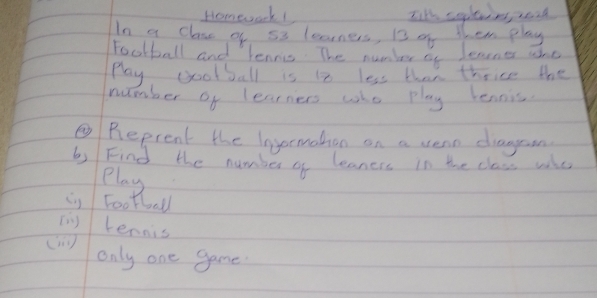 Homework 1
In a class of 53 learners, 13 of them play
Football and Tennis. The number of learner who
Play football is 18 less than thrice the
number of learners who play tennis.
a) Reprent the Information on a venn diagram.
b) Find the number of leaners in the class who
Play
(i) Football
(ii) tennis
(iii)
only one game.